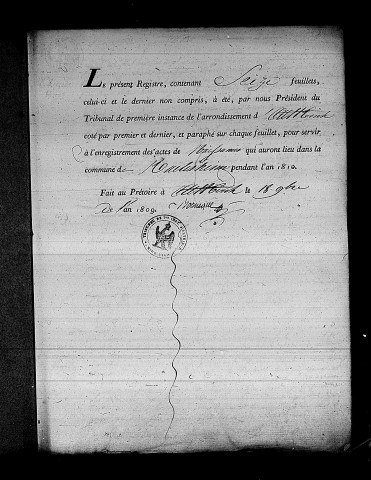 Le présent Registre, contenant Seize feuillets,
celui-ci et le dernier non compris, à été, par nous Président du
Tribunal de première instance de l'arrondissement d'Altkirch
coté par premier et dernier, et paraphé sur chaque feuillet, pour servir
à l'enregistrement des actes de Naissance qui auront lieu dans la
commune de pendant l'an 1810.
Fait au Prétoire à Altkirch le 18 9bre
De l'an 1809.